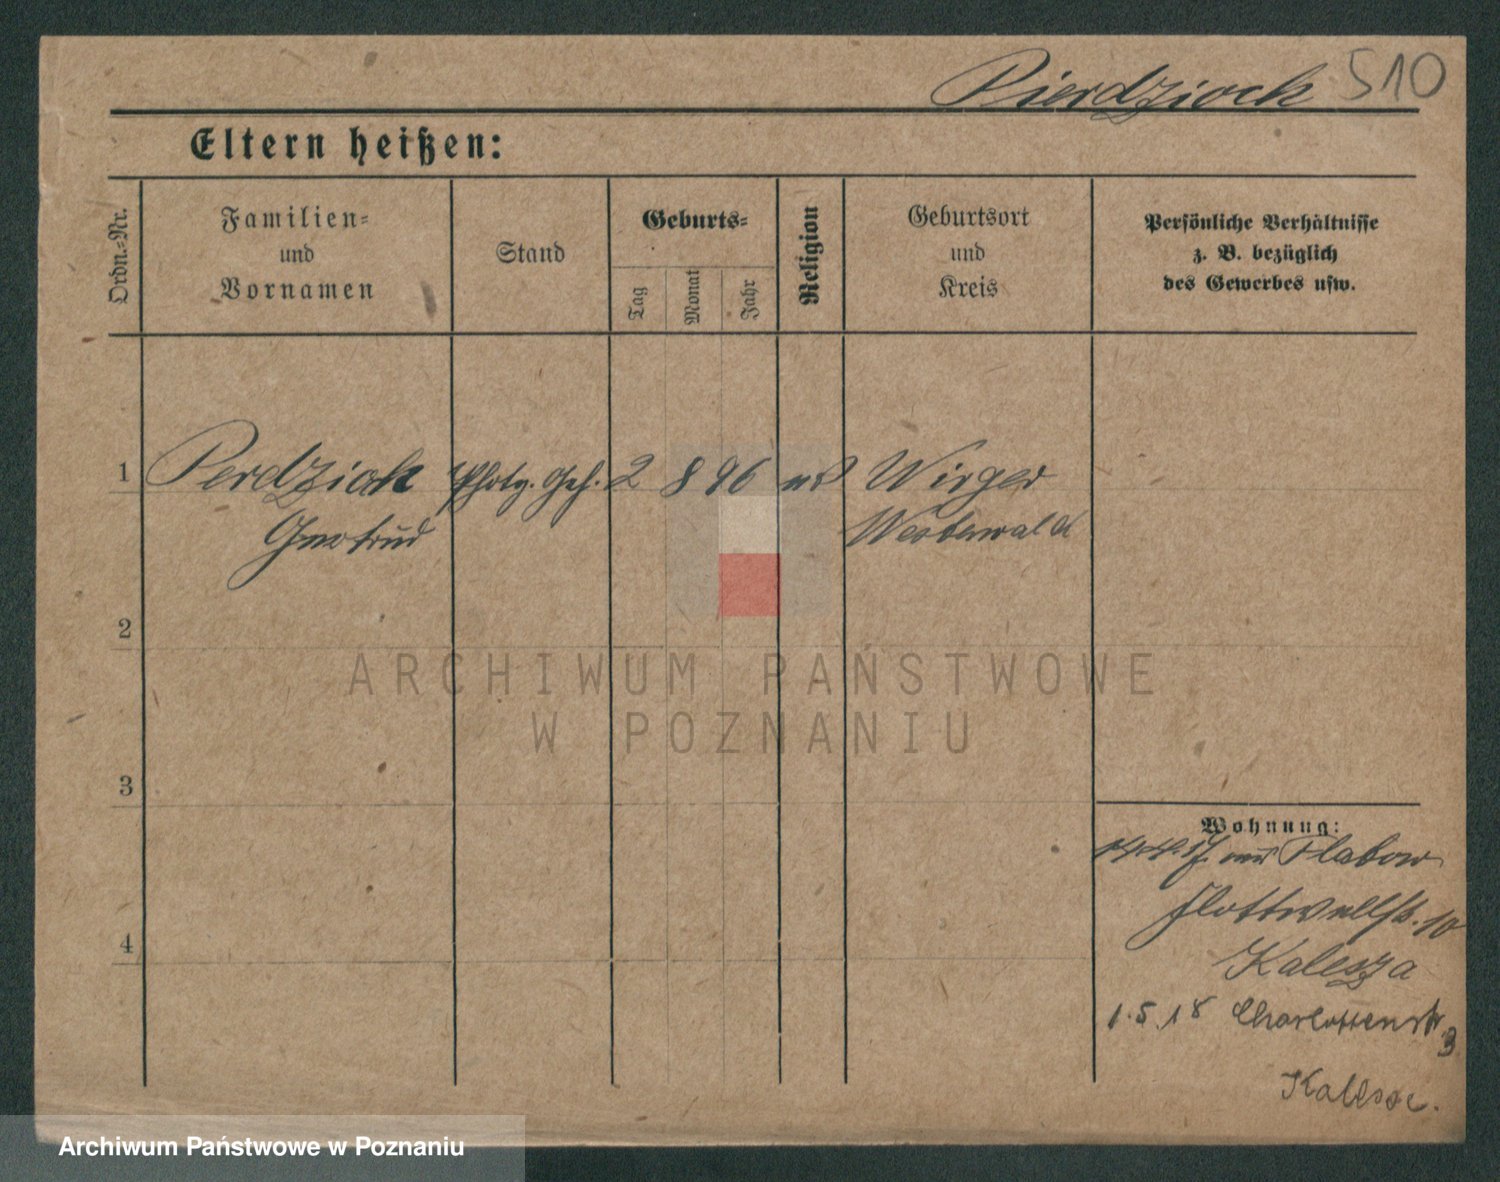 Pierdziock 510
Eltern heißen:
Ordn.-Nr.
Familien- und Vornamen
Stand
Geburts-
Tag
Monat
Jahr
Religion
Geburtsort und Kreis
Persönliche Verhältnisse
z. B. bezüglich
des Gewerbes usw.
1 Perdziok Photg. Geh. 2 8 96 Wirges
Gertrud Westerwald
2
3
4
Wohnung:
17. aus Flatow
Flottwellstr. 10
Kalesza
1.5.18 Charlottenstr. 3
ARCHIWUM PAŃSTWOWE
W POZNANIU
Archiwum Państwowe w Poznaniu